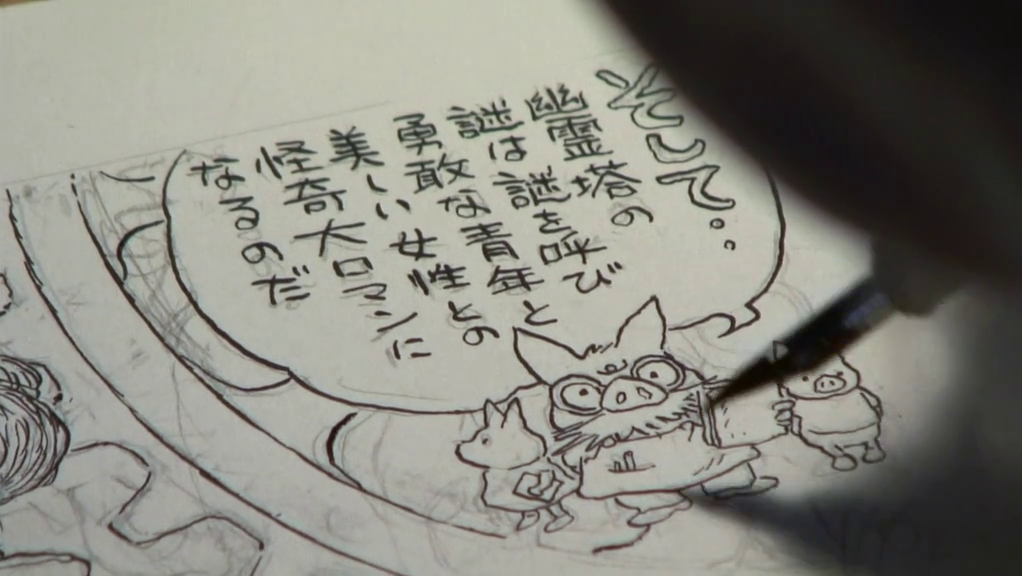 そして・・
幽霊塔の
謎は謎を呼び
勇敢な青年と
美しい女性との
怪奇大ロマンに
なるのだ